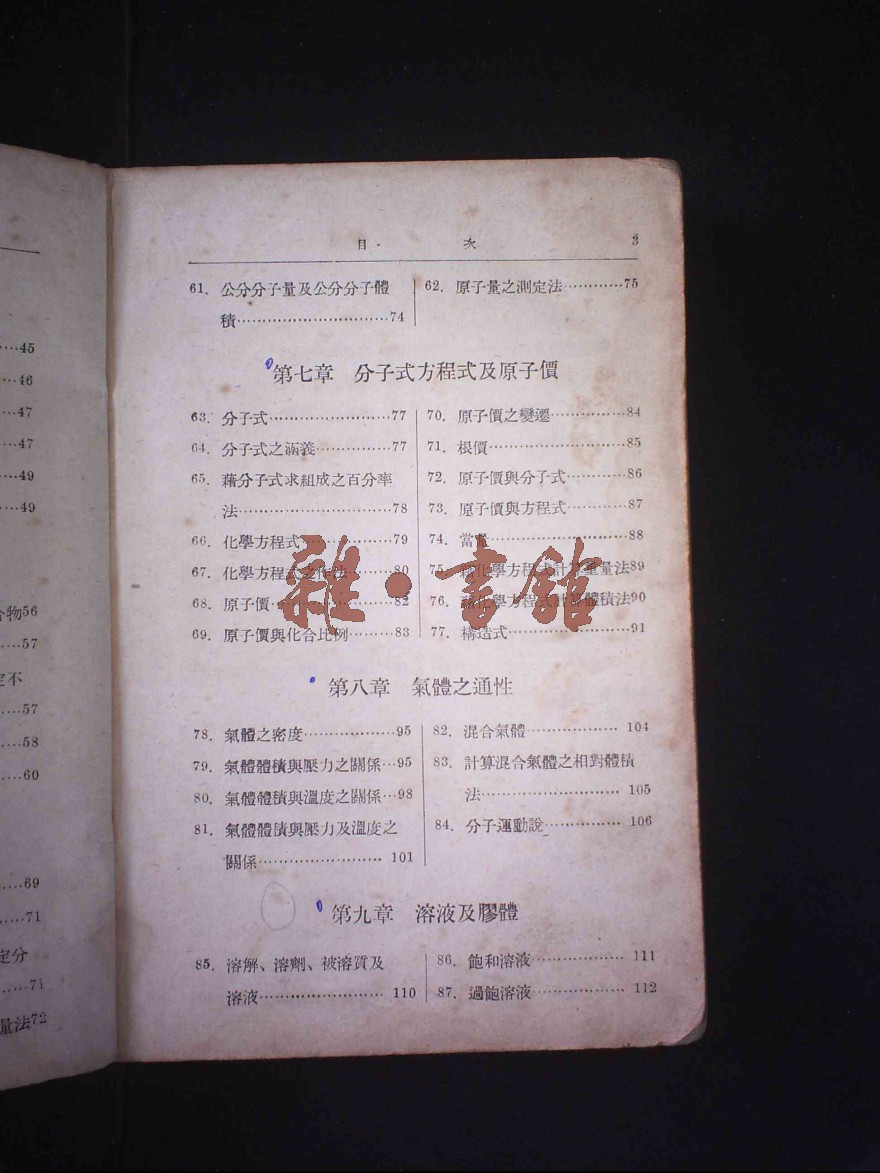 …45
…46
…47
…47
…49
…49
物56
…57
定不
…57
…58
…60
…69
…71
定分
…71
量法72
目 次 3
61. 公分分子量及公分分子體
積…74
62. 原子量之測定法…75
第七章 分子式方程式及原子價
63. 分子式…77
64. 分子式之涵義…77
65. 藉分子式求組成之百分率
法…78
66. 化學方程式…79
67. 化學方程式之作法…80
68. 原子價…82
69. 原子價與化合比例…83
70. 原子價之變遷…84
71. 根價…85
72. 原子價與分子式…86
73. 原子價與方程式…87
74. 當量…88
75. 藉化學方程式計算重量法89
76. 藉化學方程式計算體積法90
77. 構造式…91
雜·書館
第八章 氣體之通性
78. 氣體之密度…95
79. 氣體體積與壓力之關係…95
80. 氣體體積與溫度之關係…98
81. 氣體體積與壓力及溫度之
關係…101
82. 混合氣體…104
83. 計算混合氣體之相對體積
法…105
84. 分子運動說…106
第九章 溶液及膠體
85. 溶解、溶劑、被溶質及
溶液…110
86. 飽和溶液…111
87. 過飽溶液…112